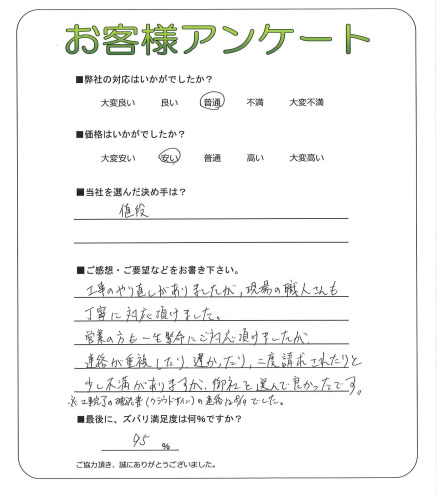 お客様アンケート
■弊社の対応はいかがでしたか？
大変良い 良い 普通 不満 大変不満
■価格はいかがでしたか？
大変安い 安い 普通 高い 大変高い
■当社を選んだ決め手は？
値段
■ご感想・ご要望などをお書き下さい。
工事のやり直しがありましたが、現場の職人さんも
丁寧に対応頂けました。
営業の方も一生懸命にご対応頂けましたが、
連絡が重複したり、遅かったり、二度請求されたりと
少し不満がありますが、御社を選んで良かったです。
※工事完了の確認書(クラウドサイン)の連絡は8/9でした。
■最後に、ズバリ満足度は何%ですか？
95 %
ご協力頂き、誠にありがとうございました。